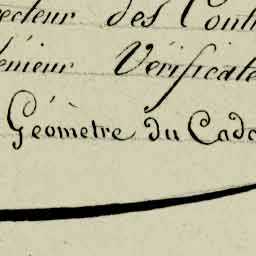 recteur des Cont
énieur Vérificate
Géomètre du Cada